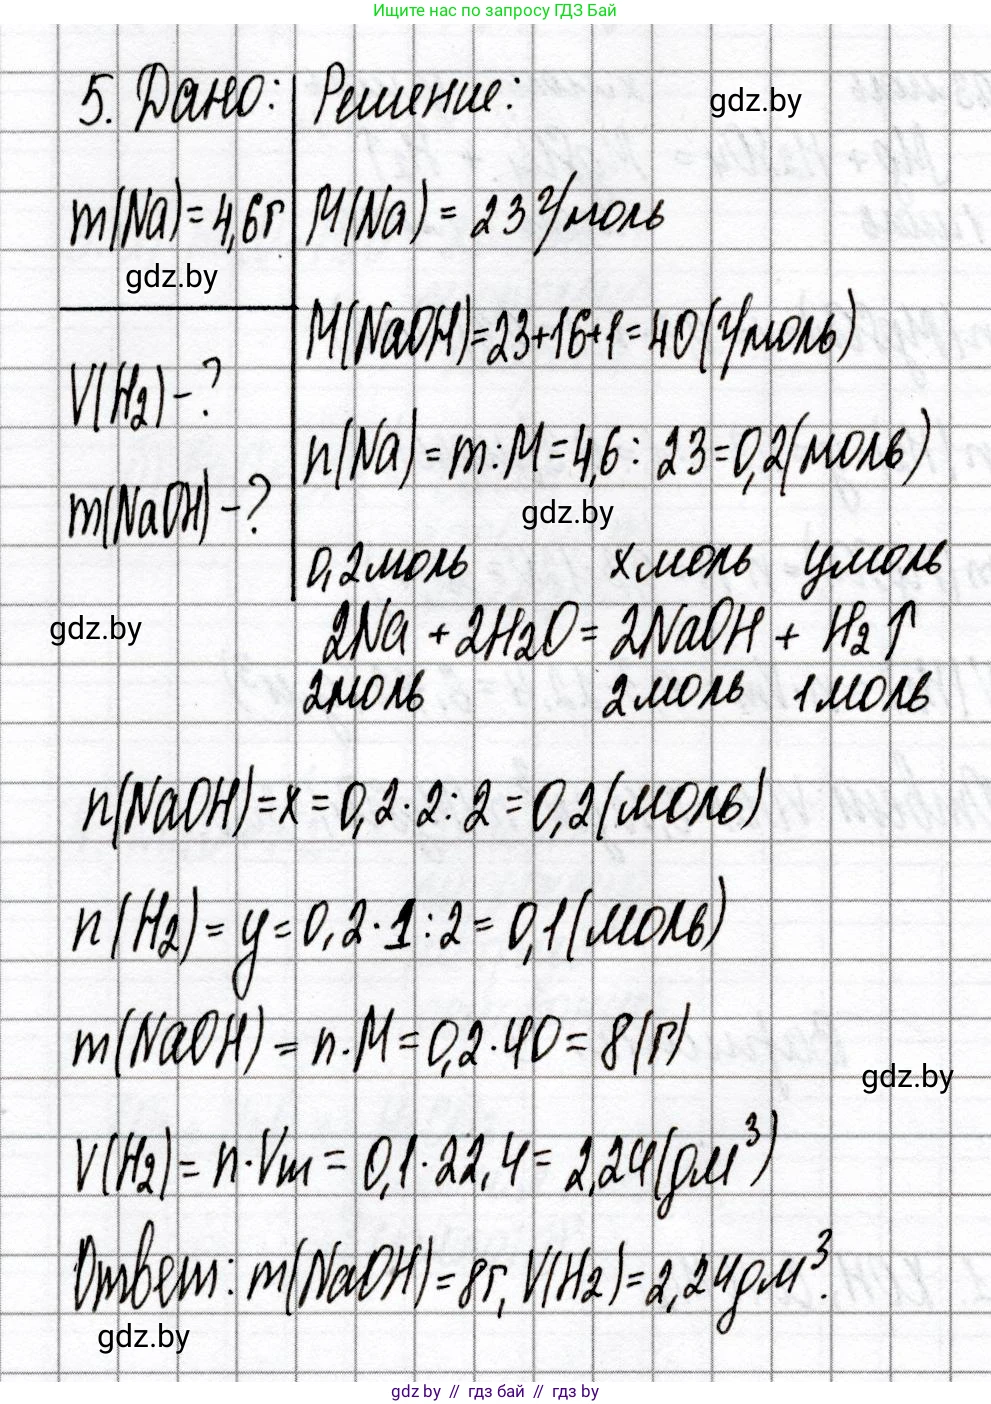 Ищите нас по запросу ГДЗ Бай
5. Дано:
Решение:
gdz.by
m(Na)=4,6г
M(Na) = 23 г/моль
gdz.by
M(NaOH)=23+16+1=40(г/моль)
V(H₂)-?
n(Na)=m:M=4,6: 23=0,2(моль)
m(NaOH)-?
gdz.by
0,2моль xмоль yмоль
gdz.by
2Na +2H₂O=2NaOH + H₂↑
2моль 2моль 1моль
n(NaOH)=x=0,2·2:2=0,2(моль)
n(H₂)=y=0,2·1:2=0,1(моль)
m(NaOH)=n·M=0,2·40=8(г)
gdz.by
V(H₂)=n·Vm=0,1·22,4=2,24(дм³)
Ответ: m(NaOH)=8г, V(H₂)=2,24дм³.
gdz.by
gdz by // гдз бай // gdz by